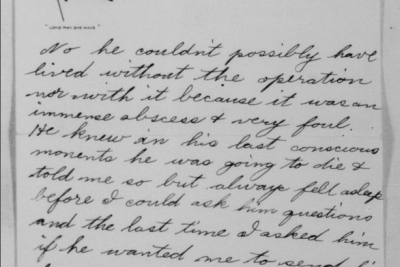 "LONG MAY SHE WAVE"
No he couldn't possibly have
lived without the operation
nor with it because it was an
immense abscess & very foul.
He knew in his last conscious
monents he was going to die &
told me so but always fell asleep
before I could ask him questions
and the last time I asked him
if he wanted me to send